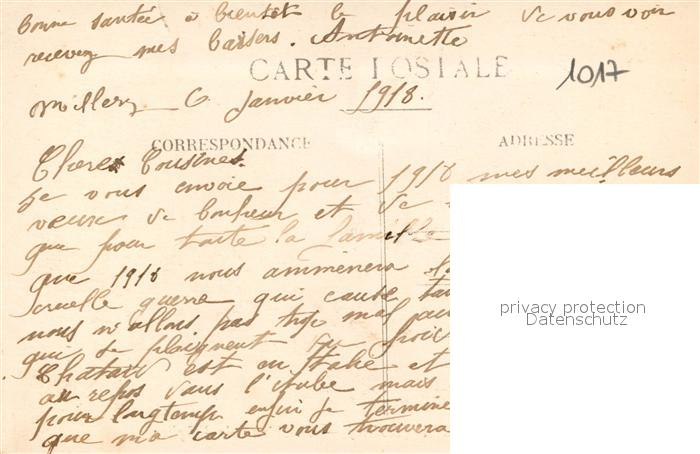 bonne santée à bientôt le plaisir de vous voir
recevez mes baisers. Antoinette
CARTE POSTALE
1017
Millery 6 Janvier 1918.
CORRESPONDANCE
ADRESSE
Chères Cousines.
Je vous envoie pour 1918 mes meilleurs
vœux de bonheur et de
que pour toute la famille
que 1918 nous ammènera la
cruelle guerre qui cause tan
nous n'allons pas trop mal
qui se plaignent du froid
Chatain est en Italie et
au repos dans l'Aube mais
pour longtemps enfin je termine
que ma carte vous trouvera
privacy protection
Datenschutz